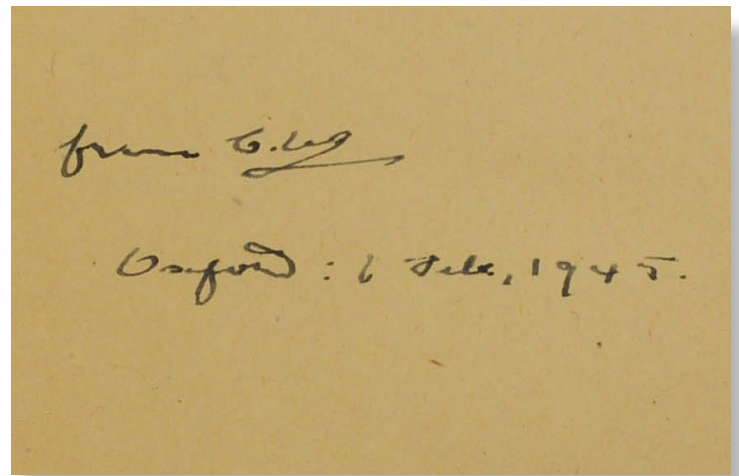 from C.W
Oxford : 6 Feb, 1945.